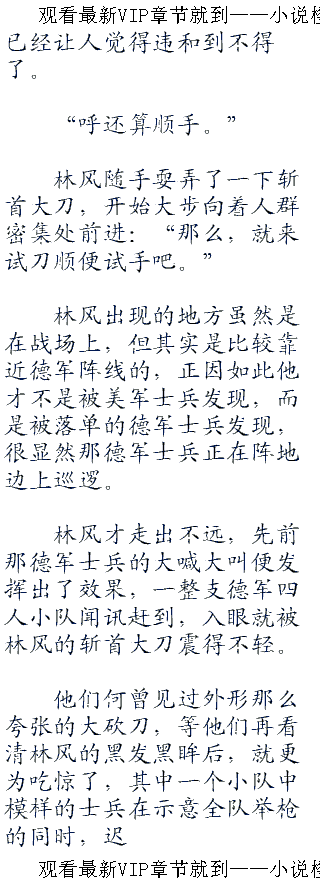 观看最新VIP章节就到——小说检
已经让人觉得违和到不得
了。
“呼还算顺手。”
林风随手耍弄了一下斩
首大刀，开始大步向着人群
密集处前进：“那么，就来
试刀顺便试手吧。”
林风出现的地方虽然是
在战场上，但其实是比较靠
近德军阵线的，正因如此他
才不是被美军士兵发现，而
是被落单的德军士兵发现，
很显然那德军士兵正在阵地
边上巡逻。
林风才走出不远，先前
那德军士兵的大喊大叫便发
挥出了效果，一整支德军四
人小队闻讯赶到，入眼就被
林风的斩首大刀震得不轻。
他们何曾见过外形那么
夸张的大砍刀，等他们再看
清林风的黑发黑眸后，就更
为吃惊了，其中一个小队中
模样的士兵在示意全队举枪
的同时，迟
观看最新VIP章节就到——小说检